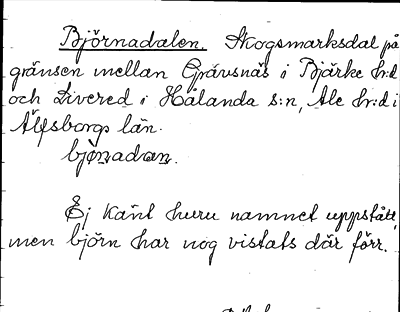 Björnadalen. Skogsmarksdal på
gränsen mellan Grävsnäs i Bjärke hr:d
och Livered i Hålanda s:n, Ale hr:d i
Älfsborgs län.
bjönadan.
Ej känt huru namnet uppstått,
men björn har nog vistats där förr.